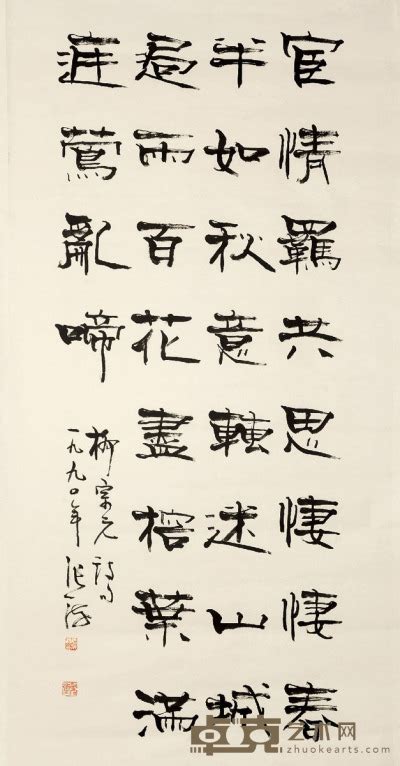 宦情羈共思悽悽春
半如秋意轉迷山城
過雨百花盡榕葉滿
庭鶯亂啼
柳宗元詩句
一九九〇年 張海
卓克艺术网
zhuokearts.com